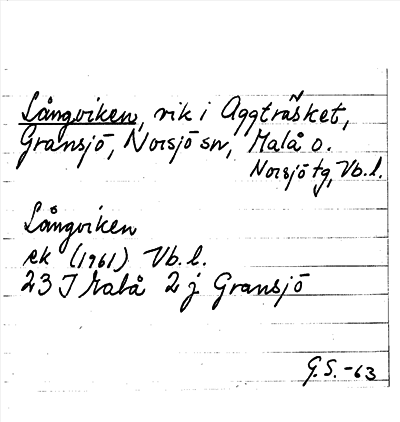 Långviken, vik i Aggträsket,
Gransjö, Norsjö sn, Malå o.
Norsjö tg, Vb.l.
Långviken
ek (1961) Vb.l.
23 J Malå 2 j Gransjö
G.S. -63